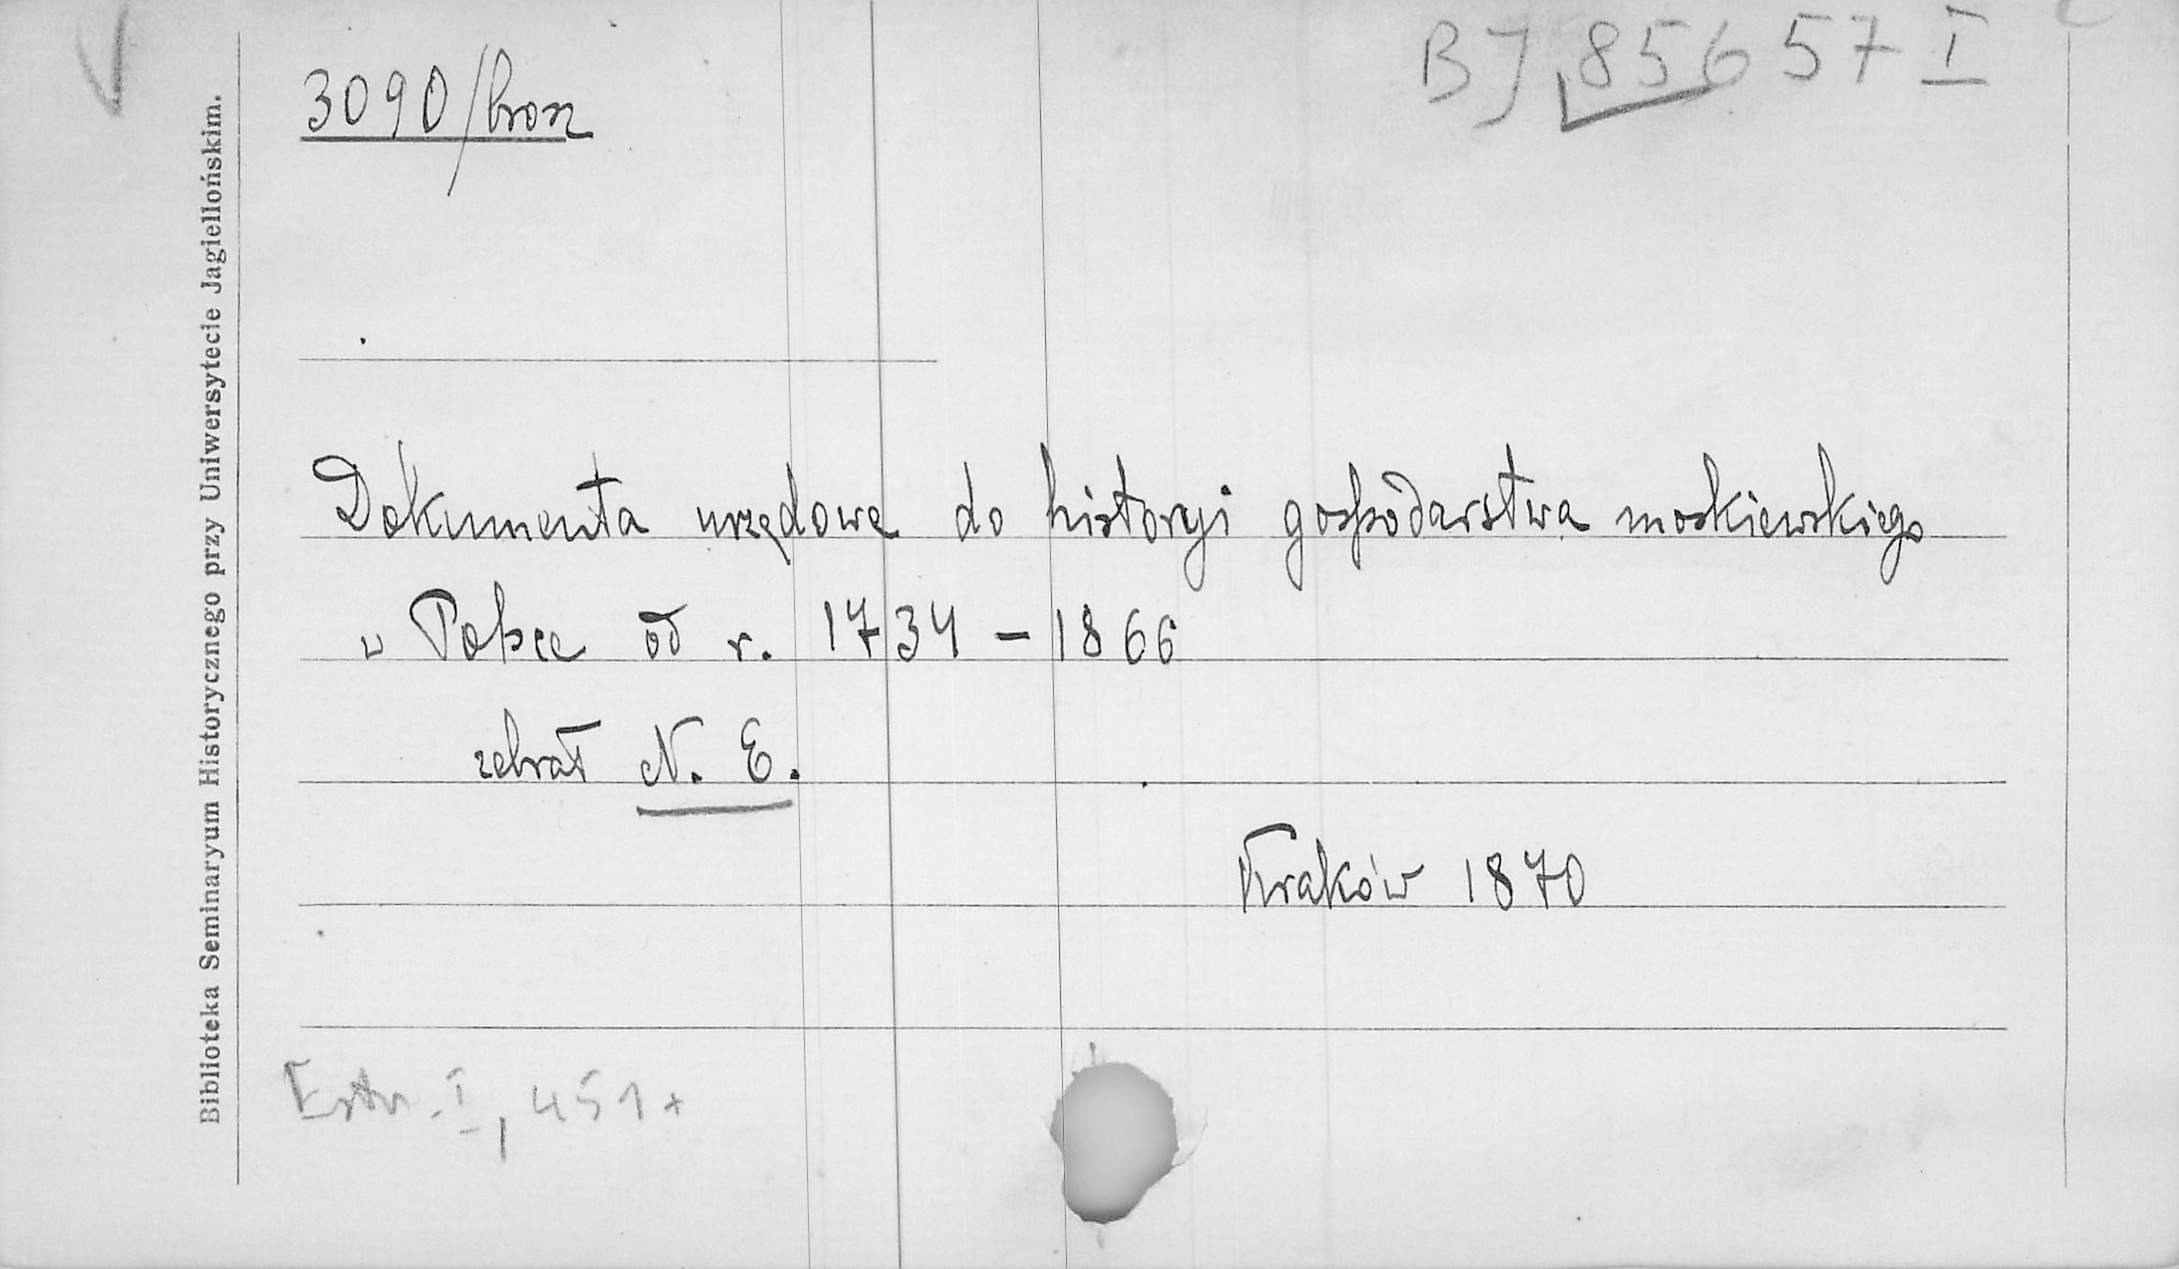 3090/brosz
BJ 85657 I
Dokumenta urzędowe do historyi gospodarstwa moskiewskiego
w Polsce od r. 1734 – 1866
zebrał N. E.
Kraków 1870
Estr. I, 451
Biblioteka Seminaryum Historycznego przy Uniwersytecie Jagiellońskim.